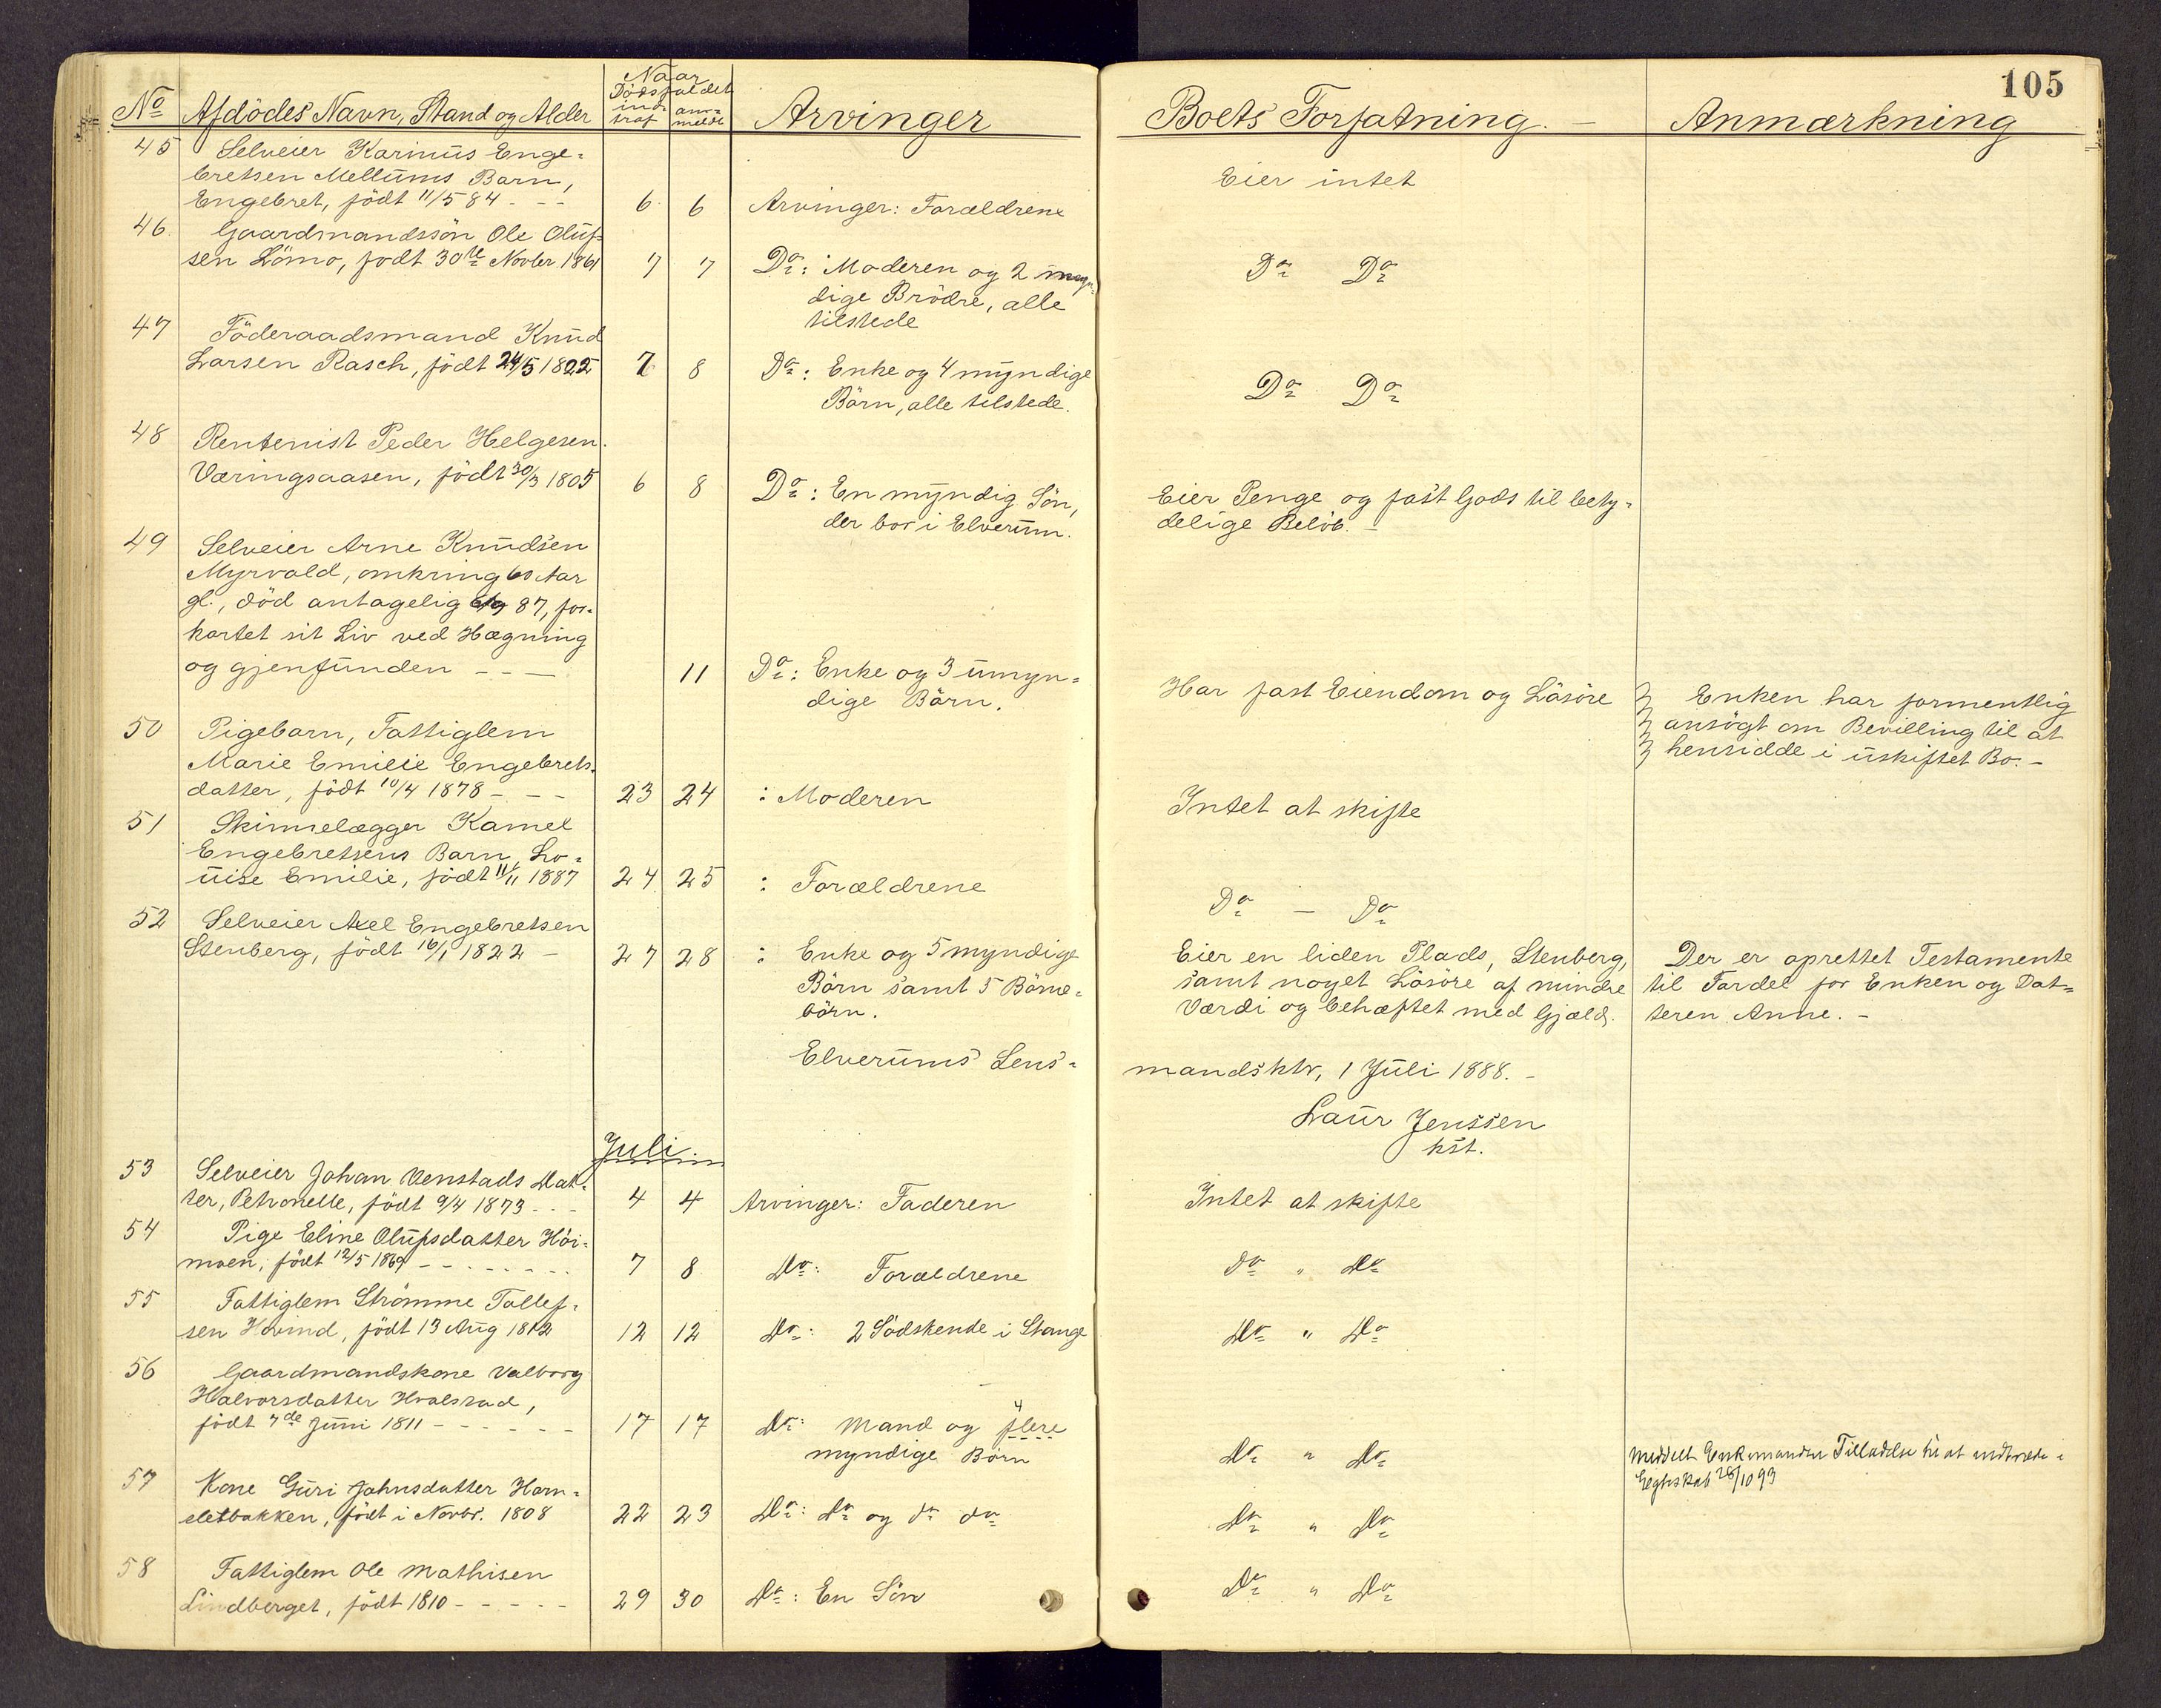 105
Naar
Dødsfaldet
No Afdödes Navn, Stand og Alder ind-traf an-meldt Arvinger Boets Forfatning. Anmærkning
45 Selveier Karinus Enge-
bretsen Mellums Barn, Eier intet
Engebret, födt 11/5 84 - - - 6 6 Arvinger: Forældrene
46 Gaardmandssön Ole Oluf-
sen Lömo, födt 30te Novber 1861 7 7 Do: Moderen og 2 myn- Do Do
dige Brödre, alle
tilstede
47 Föderaadsmand Knud
Larsen Rasch, födt 24/5 1822 7 8 Do: Enke og 4 myndige Do Do
Börn, alle tilstede.
48 Rentenist Peder Helgesen
Væringsaasen, födt 30/3 1805 6 8 Do: En myndig Sön, Eier Penge og fast Gods til bety-
der bor i Elverum. delige Belöb. -
49 Selveier Arne Knudsen
Myrvold, omkring 60 Aar
gl., död antagelig 87, for-
kortet sit Liv ved Hægning
og gjenfunden - - - 11 Do: Enke og 3 umyn- Har fast Eiendom og Lösöre Enken har formentlig
dige Börn. ansögt om Bevilling til at
hensidde i uskiftet Bo. -
50 Pigebarn, Fattiglem
Marie Emilie Engebrets-
datter, födt 10/4 1878 - - - 23 24 : Moderen Intet at skifte
51 Skinnelægger Kamel
Engebretsens Barn, Lo-
uise Emilie, födt 11/11 1887 24 25 : Forældrene Do - Do
52 Selveier Axel Engebretsen
Stenberg, födt 16/1 1822 - 27 28 : Enke og 5 myndige Eier en liden Plads, Stenberg, Der er oprettet Testamente
Börn samt 5 Börne- samt noget Lösöre af mindre til Fordel for Enken og Dat-
börn. Værdi og behæftet med Gjæld. teren Anne. -
Elverums Lens-
mandsktr, 1 Juli 1888. -
Laur Jenssen
kst.
Juli.
53 Selveier Johan Venstads Dat-
ter, Petronelle, födt 9/4 1873 - - - 4 4 Arvinger: Faderen Intet at skifte
54 Pige Eline Olufsdatter Höi-
moen, födt 12/5 1869 - - - 7 8 Do: Forældrene do " Do
55 Fattiglem Strömme Tollef-
sen Hovind, födt 13 Aug 1812 12 12 Do: 2 Södskende i Stange Do " Do
56 Gaardmandskone Valborg
Halvorsdatter Hvalstad,
födt 7de Juni 1811 - - - 17 17 Do: Mand og flere 4
myndige Börn Do " Do Meddelt Enkemanden Tilladelse til at indtræde i
Egteskab 28/10 93
57 Kone Guri Johnsdatter Horn-
sletbakken, födt i Novbr. 1808 22 23 Do: do og do do Do " Do
58 Fattiglem Ole Mathisen
Lindberget, födt 1810 - - - 29 30 Do: En Sön Do " Do